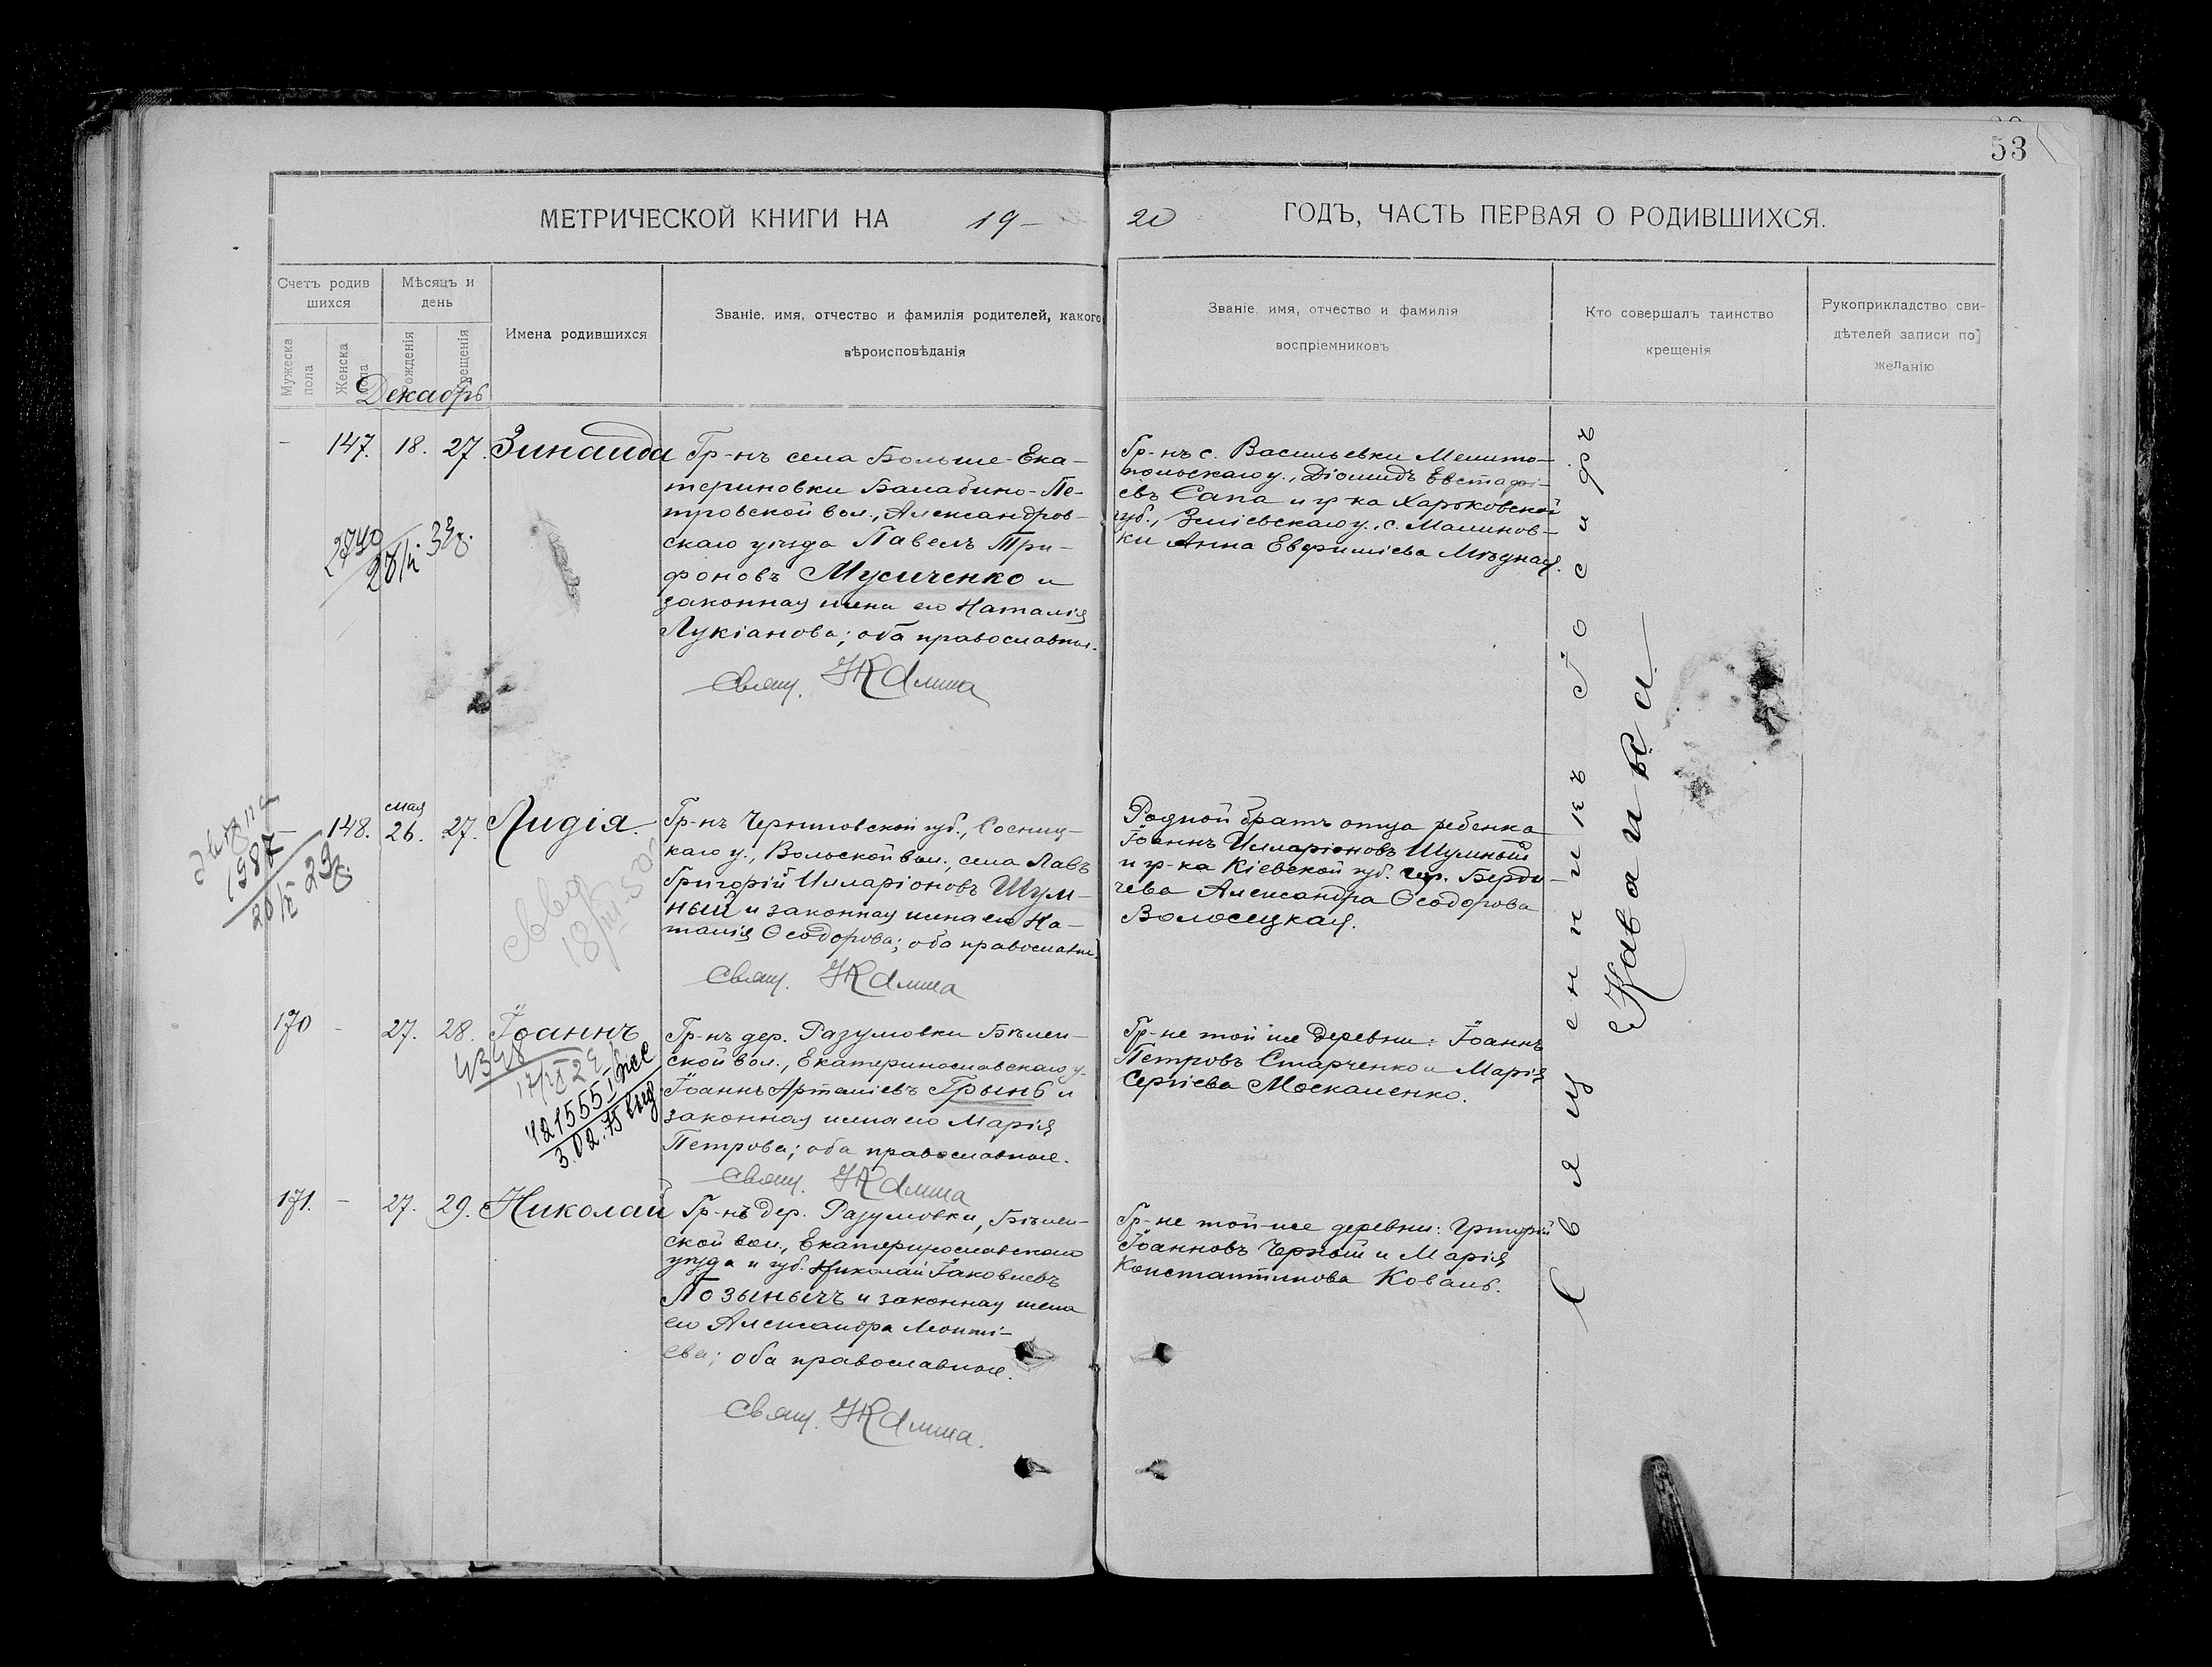 53
МЕТРИЧЕСКОЙ КНИГИ НА 19-
20 ГОДЪ, ЧАСТЬ ПЕРВАЯ О РОДИВШИХСЯ.
Счетъ родив
шихся
Мужеска
пола
Женска
пола
Мѣсяцъ и
день
рожденія
крещенія
Имена родившихся
Званіе, имя, отчество и фамилія родителей, какого
вѣроисповѣданія
Званіе, имя, отчество и фамилія
воспріемниковъ
Кто совершалъ таинство
крещенія
Рукоприкладство сви-
дѣтелей записи по
желанію
Декабрь
- 147. 18. 27. Зинаида
Гр-нъ села Больше-Ека-
териновки Балабино-Пе-
тровской вол., Александров-
скаго уѣзда Павелъ Три-
фоновъ Мусиченко и
законная жена его Наталія
Лукіанова; оба православные.
Свящ. І Калита
Гр-нъ с. Васильевки Мелито-
польскаго у., Діомидъ Евстафі-
евъ Сапа и гр-ка Харьковской
губ., Зміевскаго у., с. Малинов-
ки Анна Евфиміева Мѣдная.
2740
- 148. мая 26. 27. Лидія.
Гр-нъ Черниговской губ., Сосниц-
каго у., Вольской вол., села Лавъ
Григорій Илларіоновъ Шум-
ный и законная жена его На-
талія Ѳеодорова; оба православные.
Свящ. І Калита
Родной братъ отца ребенка
Іоаннъ Илларіоновъ Шумный
и гр-ка Кіевской губ. гор. Берди-
чева Александра Ѳеодорова
Волосецкая.
1987
170 - 27. 28. Іоаннъ
Гр-нъ дер. Разумовки Бѣлен-
ской вол., Екатеринославскаго у.
Іоаннъ Артеміевъ Грынь и
законная жена его Марія
Петрова; оба православные.
Свящ. І Калита
Гр-не той же деревни: Іоаннъ
Петровъ Старченко и Марія
Сергіева Москаленко.
421555
3.02.75
171. - 27. 29. Николай
Гр-нъ дер. Разумовки, Бѣлен-
ской вол., Екатеринославскаго
уѣзда и губ. Николай Іаковлевъ
Лозынычъ и законная жена
его Александра Леонті-
ева; оба православные.
Свящ. І Калита.
Гр-не той-же деревни: Григорій
Іоанновъ Черный и Марія
Константинова Коваль.
Священникъ Іосифъ